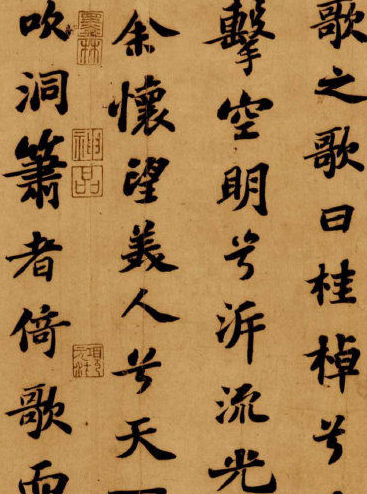 歌之歌曰桂棹兮
擊空明兮泝流光
余懷望美人兮天
墨林
神品
吹洞簫者倚歌而